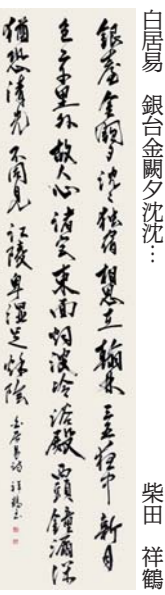 白居易　銀台金闕夕沈沈…
柴田　祥鶴
銀臺金闕夕沈々独宿相思在翰林三五夜中新月
色二千里外故人心渚宮東面烟波冷浴殿西頭鐘漏深
猶恐清光不同見江陵卑湿足秋陰 白居易詩 祥鶴書